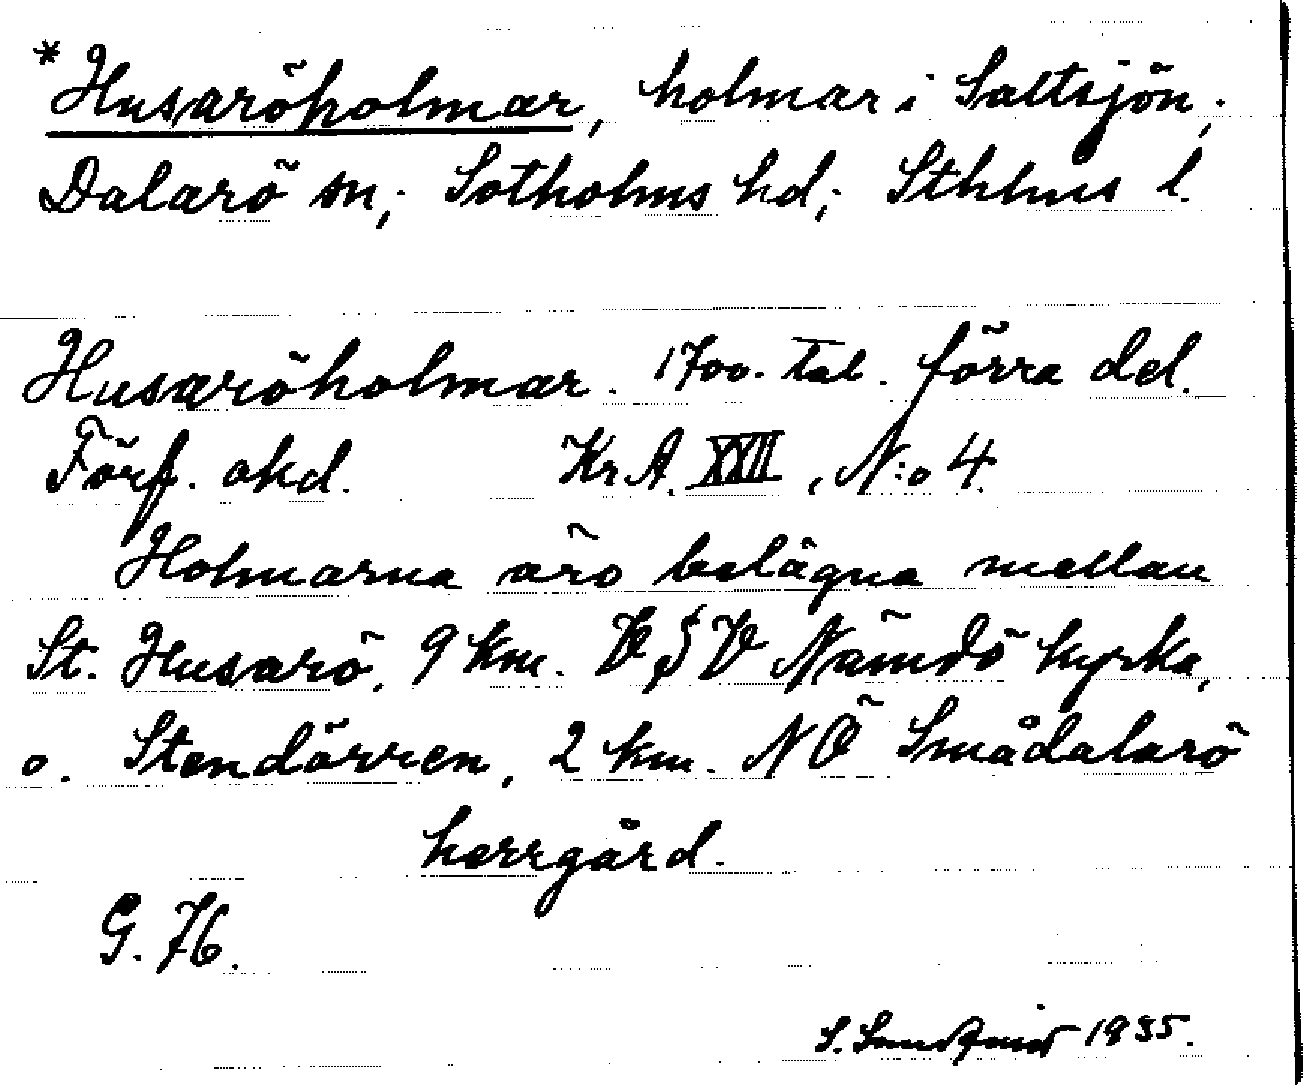 *Husaröholmar, holmar i Saltsjön;
Dalarö sn; Sotholms hd; Sthlms l.
Husaröholmar. 1700-tal. förra del.
Förf. okd. Kr. A. XXII, N:o 4.
Holmarna äro belägna mellan
St. Husarö, 9 km. V S V Nämdö kyrka,
o. Stendörren, 2 km. N Ö Smådalarö
herrgård.
G. 76.
S. Sundqvist 1935.